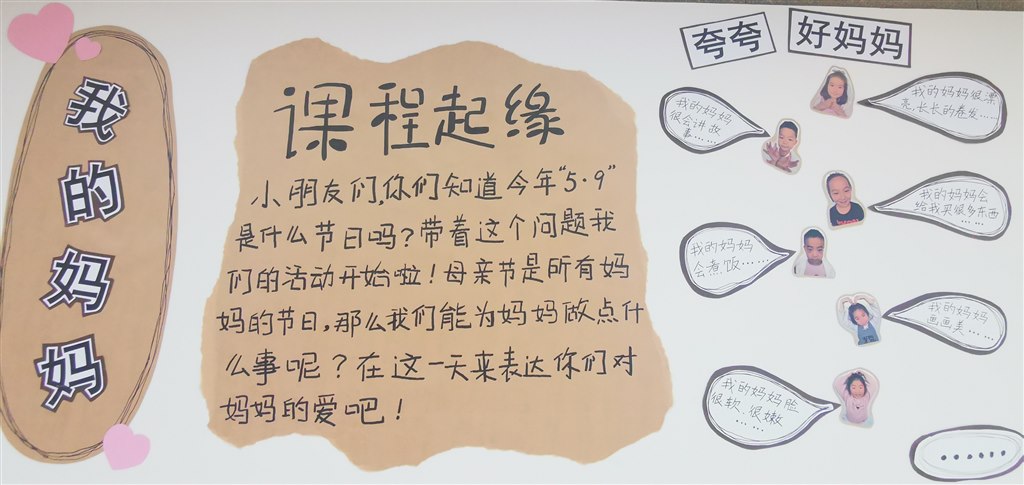 我的妈妈
课程起缘
小朋友们,你们知道今年“5·9”
是什么节日吗?带着这个问题我
们的活动开始啦!母亲节是所有妈
妈的节日,那么我们能为妈妈做点什
么事呢?在这一天来表达你们对
妈妈的爱吧!
夸夸 好妈妈
我的妈妈
很会讲故
事……
我的妈妈很漂
亮,长长的卷发……
我的妈妈会
给我买很多东西
……
我的妈妈
会煮饭……
我的妈妈
画画美……
我的妈妈脸
很软.很嫩
……
……